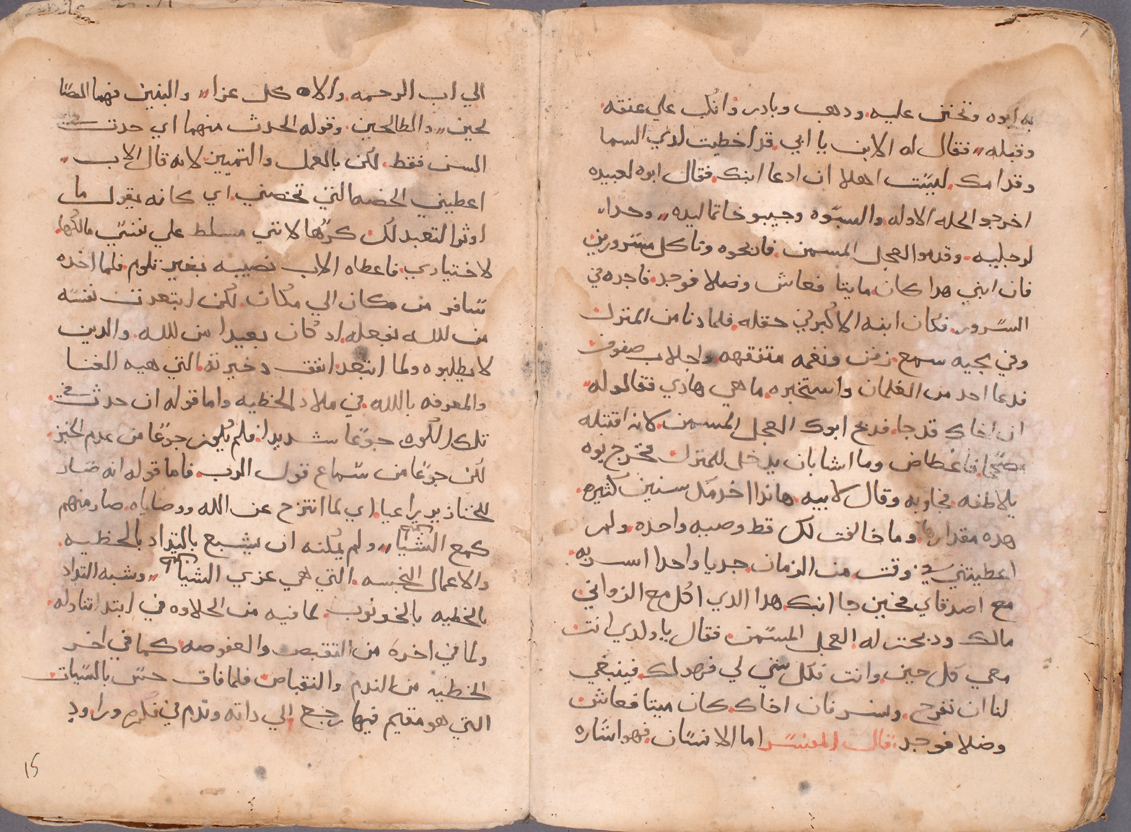 به ابوه وتحنن عليه. ودهب وبادر. وانكب علي عنقه
وقبله،، فقال له الابن يا ابي. قد اخطيت لدي السما
وقدامك. لست اهلا ان ادعا ابنك. فقال ابوه لعبيده
اخرجو الحله الاوله. والسبوه وجيبو خاتما ليده،، وحدا
لرجليه. وقدمو العجل المسمن. فادبحوه وناكل مسرورين
فان ابني هدا كان مايتا فعاش وضلا فوجد. فاجده في
السرور. فكان ابنه الاكبر في حقله. فلما دنا من المنزل
وفي مجيه سمع. زفن ونغمه متفقهه واحلاب صفوف
فدعا احد من الغلمان واستخبره. ما هي هادي فقالو له
ان اخاك قد جا. فدبح ابوك العجل المسمن. لانه اقتبله
صحيحا فاغطاض وما اشا بان يدخل للمنزل فخرج ابوه
يلاطفه فجاوبه وقال لابيه. هاندا اخدمك سنين كثيره.
هده مقدارها. وما خالفت لك قط وصيه واحده. ولم
اعطيتني في وقت من الزمان. جديا واحدا اسر به
مع اصدقاي فحين جا ابنك هدا الدي اكل مع الزواني
مالك ودبحت له العجل المسمن. فقال يا ولدي انت
معي كل حين. وانت فكل شي لي فهو لك. فينبغي
لنا ان نفرح. ونسر فان اخاك كان ميتا فعاش
وضلا فوجد. قال المفسر اما الانسان. فهو اشاره
الي اب الرحمه. والاه كل عزا،، والبنين فهما الصا
لحين،، والطالحين. وقوله الحدث منهما اي حدث
السن فقط. لكن بالعمل والتمييز. لانه قال لاب،،
اعطيني الحصه التي تخصني. اي كانه يقول ما
اوثر التعبد لك كرها لانني مسلط علي نفسي مالكها.
لاختياري. فاعطاه الاب نصيبه بغير تلوم. فلما اخده
سافر من مكان الي مكان. لكن ابتعدت نفسه
من الله بفعله. اد كان بعيدا من الله. والدين
لا يطلبوه ولما ابتعد انفق دخيرته. التي هيه الغنا
والمعرفه بالله. في ملاد الخطيه واما قوله ان حدث في
تلك الكوره جوعا شديدا. فلم تكون جوعا من عدم الخبز.
لكن جوعا من سماع قول الرب. فاما قوله انه صار
للخنازير راعيا. اي لما انتزح عن الله ووصاياه. صار منهم
كمع الشياطين،، ولم يمكنه ان يشبع بالتداد بالخطيه.
والاعمال النجسه. التي هي عزي الشياطين،، وشبه التداد
بالخطيه بالخرنوب. لما فيه من الحلاوه في ابتدا تناوله.
ولما في اخره من التقبض والعفوصه. كما في اخر
الخطيه من الندم والنقباض فلما فاق حس بالسيات
التي هو مقيم فيها رجع الي داته وندم في فكره وراود
15